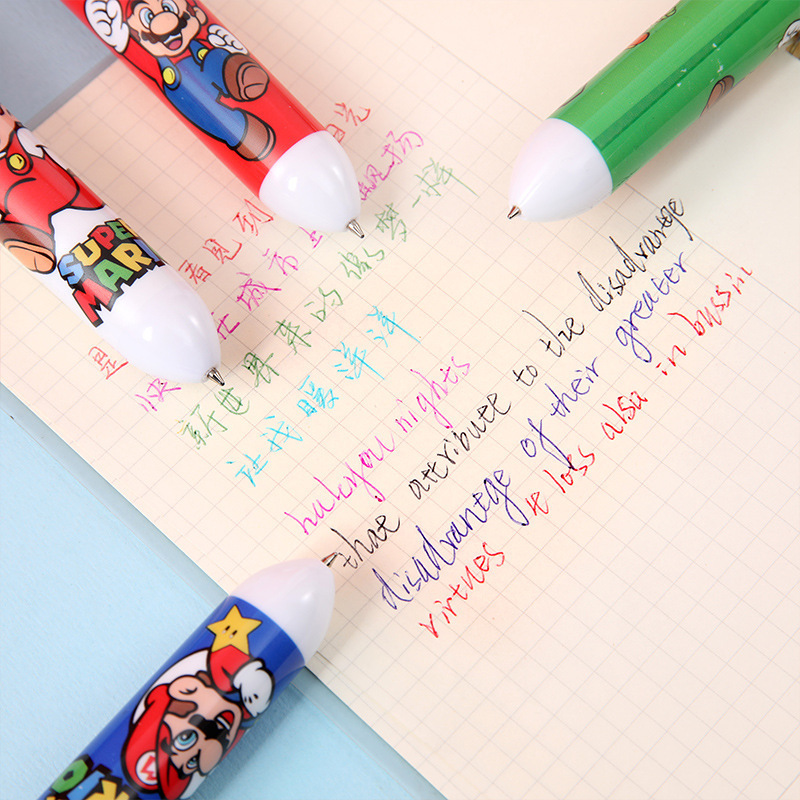 SUPER
MARI
是 看见到 光
快 忙城市 飘扬
新世界来的像梦一样
让我暖洋洋
halcyou nights
that attribute to the disadrantge
disadrantge of their greater
virtues it loss also in bussin